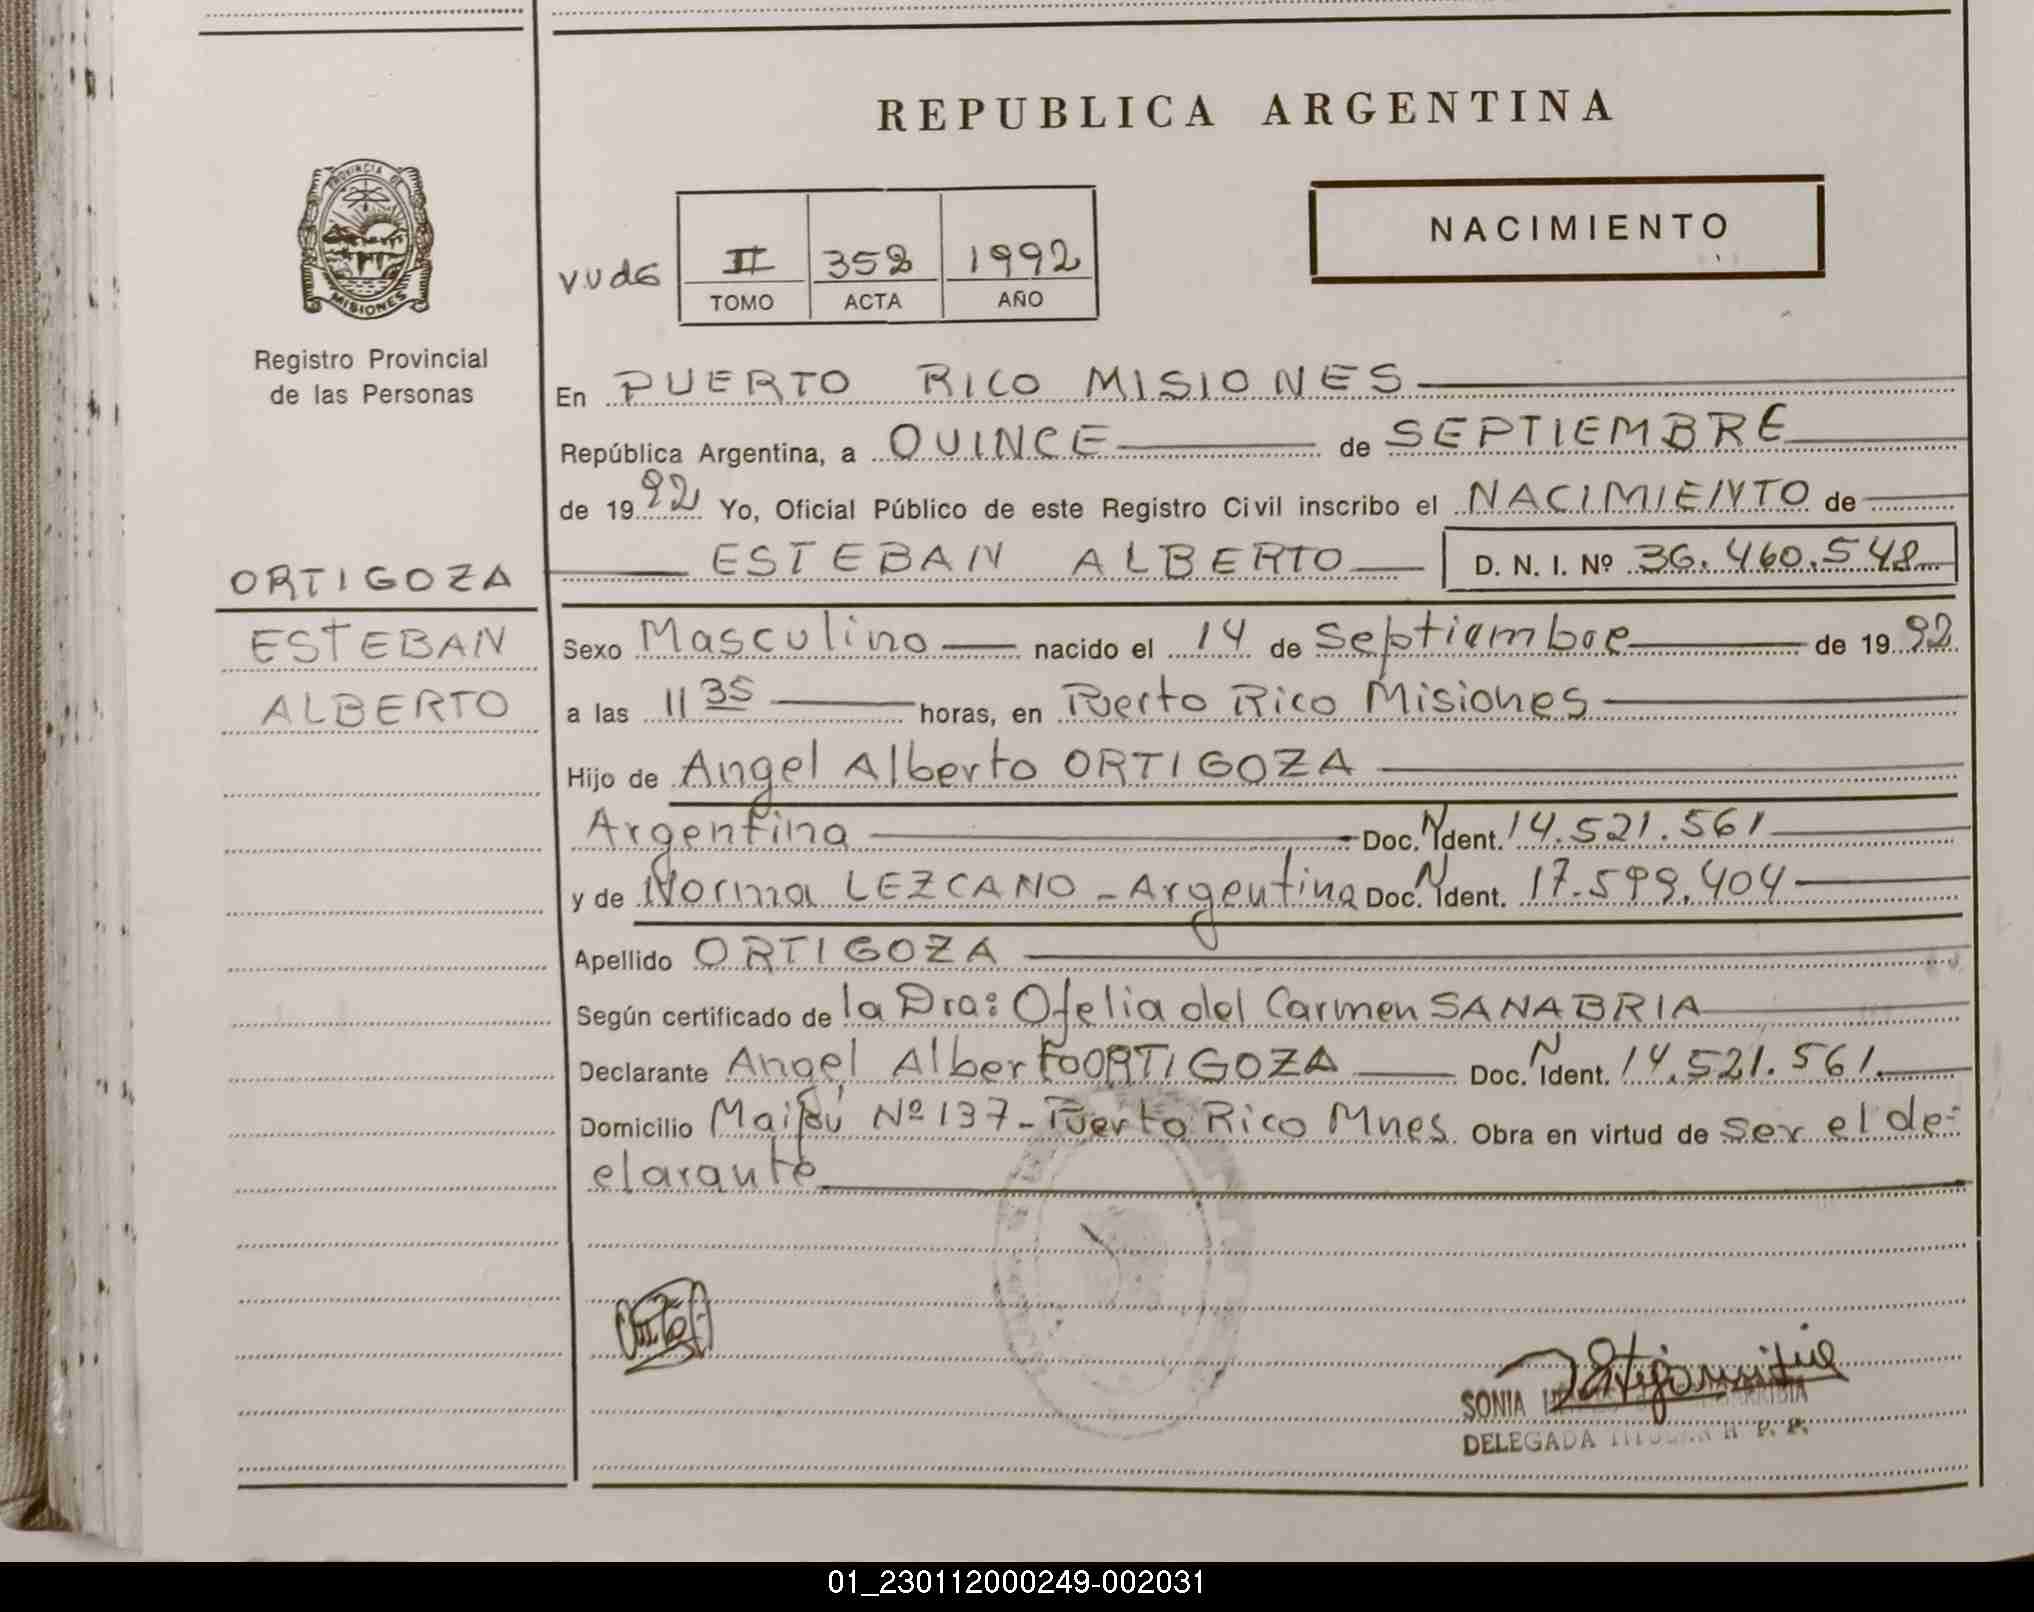 REPUBLICA ARGENTINA
PROVINCIA DE
MISIONES
Registro Provincial
de las Personas
NACIMIENTO
II 352 1992
TOMO ACTA AÑO
En PUERTO RICO MISIONES
República Argentina, a QUINCE de SEPTIEMBRE
de 1992 Yo, Oficial Público de este Registro Civil inscribo el NACIMIENTO de
ESTEBAN ALBERTO D. N. I. Nº 36.460.548
ORTIGOZA
ESTEBAN
ALBERTO
Sexo Masculino nacido el 14 de Septiembre de 1992
a las 11 35 horas, en Puerto Rico Misiones
Hijo de Angel Alberto ORTIGOZA
Argentina Doc. N Ident. 14.521.561
y de Norma LEZCANO - Argentina Doc. N Ident. 17.599.404
Apellido ORTIGOZA
Según certificado de la Dra: Ofelia del Carmen SANABRIA
Declarante Angel Alberto ORTIGOZA Doc. N Ident. 14.521.561.
Domicilio Maipú Nº 137 - Puerto Rico Mnes. Obra en virtud de ser el de=
clarante
SONIA
DELEGADA TITULAR R. P. P.
01_230112000249-002031